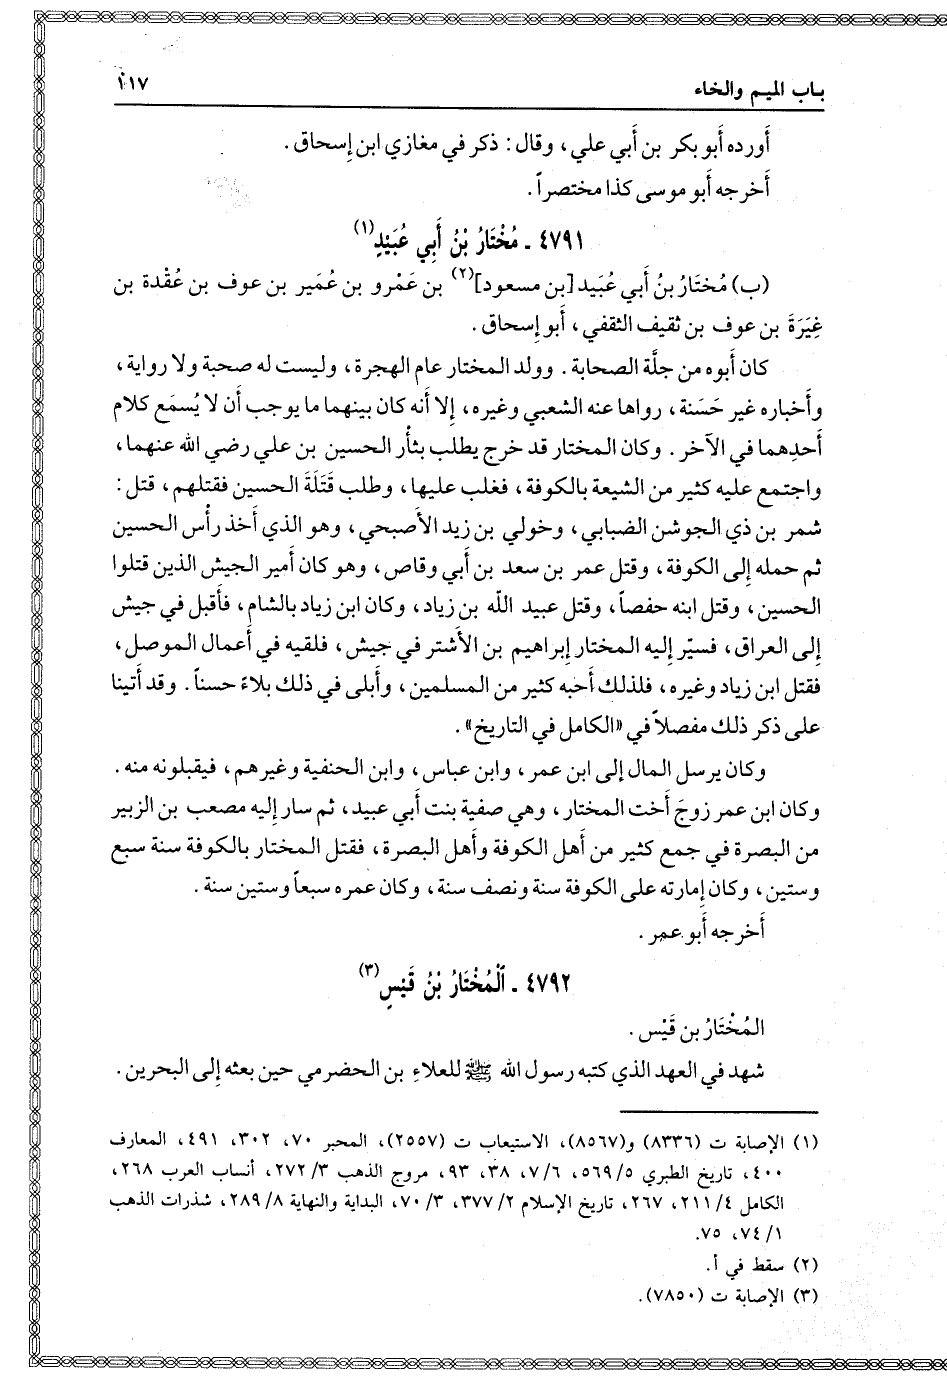 باب الميم والخاء ١١٧
أورده أبو بكر بن أبي علي، وقال: ذكر في مغازي ابن إسحاق.
أخرجه أبو موسى كذا مختصراً.
٤٧٩١ - مُخْتَارُ بْنُ أَبِي عُبَيْدٍ(١)
(ب) مُختَارُ بنُ أَبي عُبَيد [بن مسعود](٢) بن عَمْرو بن عُمَير بن عوف بن عُقْدة بن
غِيَرَةَ بن عوف بن ثقيف الثقفي، أبو إسحاق.
كان أبوه من جلَّة الصحابة. وولد المختار عام الهجرة، وليست له صحبة ولا رواية،
وأخباره غير حَسَنة، رواها عنه الشعبي وغيره، إلا أنه كان بينهما ما يوجب أن لا يُسمَع كلام
أحدِهما في الآخر. وكان المختار قد خرج يطلب بثأر الحسين بن علي رضي الله عنهما،
واجتمع عليه كثير من الشيعة بالكوفة، فغلب عليها، وطلب قَتَلَةَ الحسين فقتلهم، قتل:
شمر بن ذي الجوشن الضبابي، وخولي بن زيد الأصبحي، وهو الذي أخذ رأس الحسين
ثم حمله إلى الكوفة، وقتل عمر بن سعد بن أبي وقاص، وهو كان أمير الجيش الذين قتلوا
الحسين، وقتل ابنه حفصاً، وقتل عبيد اللّه بن زياد، وكان ابن زياد بالشام، فأقبل في جيش
إلى العراق، فسيّر إليه المختار إبراهيم بن الأشتر في جيش، فلقيه في أعمال الموصل،
فقتل ابن زياد وغيره، فلذلك أحبه كثير من المسلمين، وأبلى في ذلك بلاءً حسناً. وقد أتينا
على ذكر ذلك مفصلاً في «الكامل في التاريخ».
وكان يرسل المال إلى ابن عمر، وابن عباس، وابن الحنفية وغيرهم، فيقبلونه منه.
وكان ابن عمر زوجَ أخت المختار، وهي صفية بنت أبي عبيد، ثم سار إليه مصعب بن الزبير
من البصرة في جمع كثير من أهل الكوفة وأهل البصرة، فقتل المختار بالكوفة سنة سبع
وستين، وكان إمارته على الكوفة سنة ونصف سنة، وكان عمره سبعاً وستين سنة.
أخرجه أبو عمر.
٤٧٩٢ - ٱلْمُخْتَارُ بْنُ قَيْسٍ(٣)
المُخْتَارُ بن قَيْس.
شهد في العهد الذي كتبه رسول الله ﷺ للعلاءِ بن الحضرمي حين بعثه إلى البحرين.
(١) الإصابة ت (٨٣٣٦) و(٨٥٦٧)، الاستيعاب ت (٢٥٥٧)، المحبر ٧٠، ٣٠٢، ٤٩١، المعارف
٤٠٠، تاريخ الطبري ٥/ ٥٦٩، ٦/ ٧، ٣٨، ٩٣، مروج الذهب ٣/ ٢٧٢، أنساب العرب ٢٦٨،
الكامل ٤/ ٢١١، ٢٦٧، تاريخ الإسلام ٢/ ٣٧٧، ٣/ ٧٠، البداية والنهاية ٨/ ٢٨٩، شذرات الذهب
١/ ٧٤، ٧٥.
(٢) سقط في أ.
(٣) الإصابة ت (٧٨٥٠).